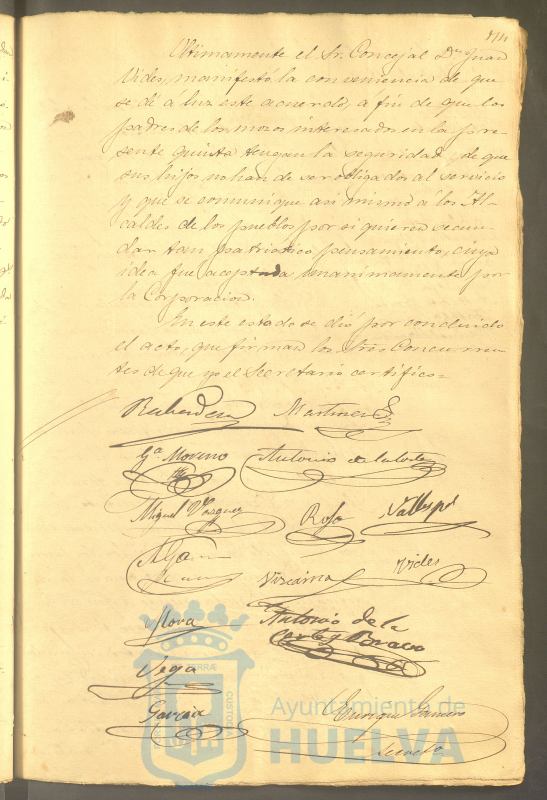 Ultimamente el Sr. Concejal Dn Juan
Vides, manifestó la conveniencia de que
se dé á luz este acuerdo, a fin de que los
padres de los mozos interesados en la pre-
sente quinta tengan la seguridad, de que
sus hijos no han de ser obligados al servicio
y que se comunique asi mismo á los Al-
caldes de los pueblos por si quieren secun-
dar tan patriotico pensamiento, cuya
idea fue aceptada unanimamente por
la Corporacion.
En este estado se dió por concluido
el acto, que firman los Sres Concurren-
tes de que yo el Secretario certifico=
Martinez
Ga Moreno Antonio de la Corte
Miguel Vazquez Rofa Vallespi
Vizcaina Vides
Mora Antonio de la
Corte y Bravo
Vega
Garcia
Enrique
Secreto
Ayuntamiento de
HUELVA